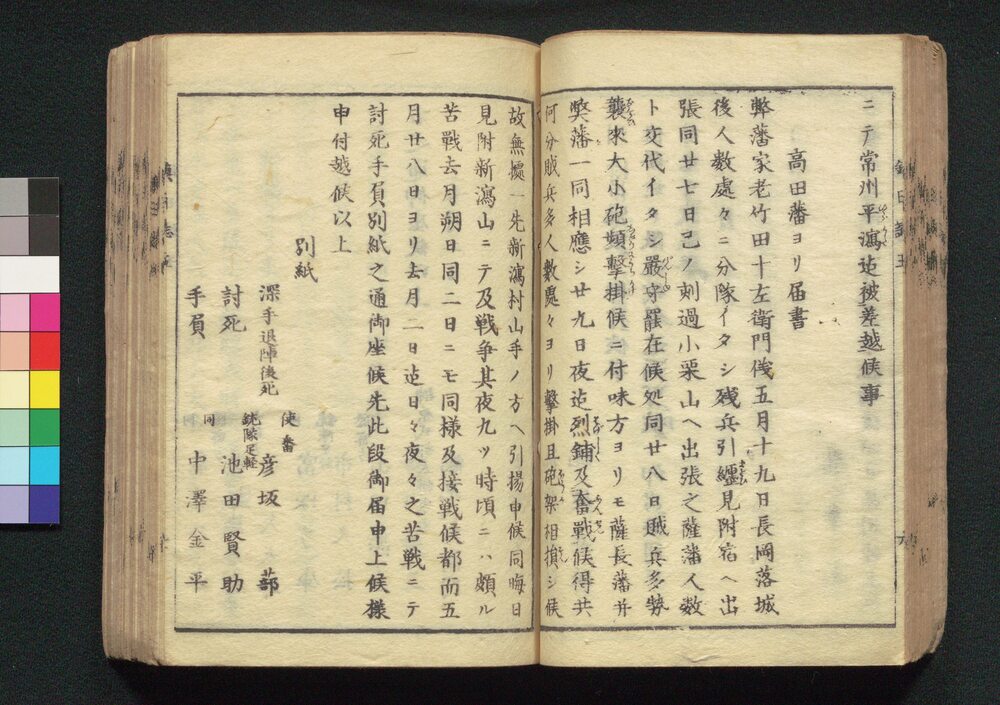 ニテ常州平潟迠被差越候事
高田藩ヨリ届書
弊藩家老竹田十左衛門儀五月十九日長岡落城
後人數處々ニ分隊イタシ残兵引纏見附宿ヘ出
張同廿七日己ノ刻過小栗山ヘ出張之薩藩人数
ト交代イタシ嚴守罷在候処同廿八日賊兵多勢
襲來大小砲頻撃掛候ニ付味方ヨリモ薩長藩并
弊藩一同相應シ廿九日夜迠烈鋪及奮戰候得共
何分賊兵多人數處々ヨリ撃掛且砲架相損シ候
故無據一先新瀉村山手ノ方ヘ引揚申候同晦日
見附新瀉山ニテ及戦争其夜九ツ時頃ニハ頗ル
苦戰去月朔日同二日ニモ同樣及接戦候都而五
月廿八日ヨリ去月二日迠日々夜々之苦戰ニテ
討死手負別紙之通御座候先此段御届申上候樣
申付越候以上
別紙
深手退陣後死 使番 彦坂 蔀
討死 銃隊足軽 池田賢助
手負 同 中澤金平